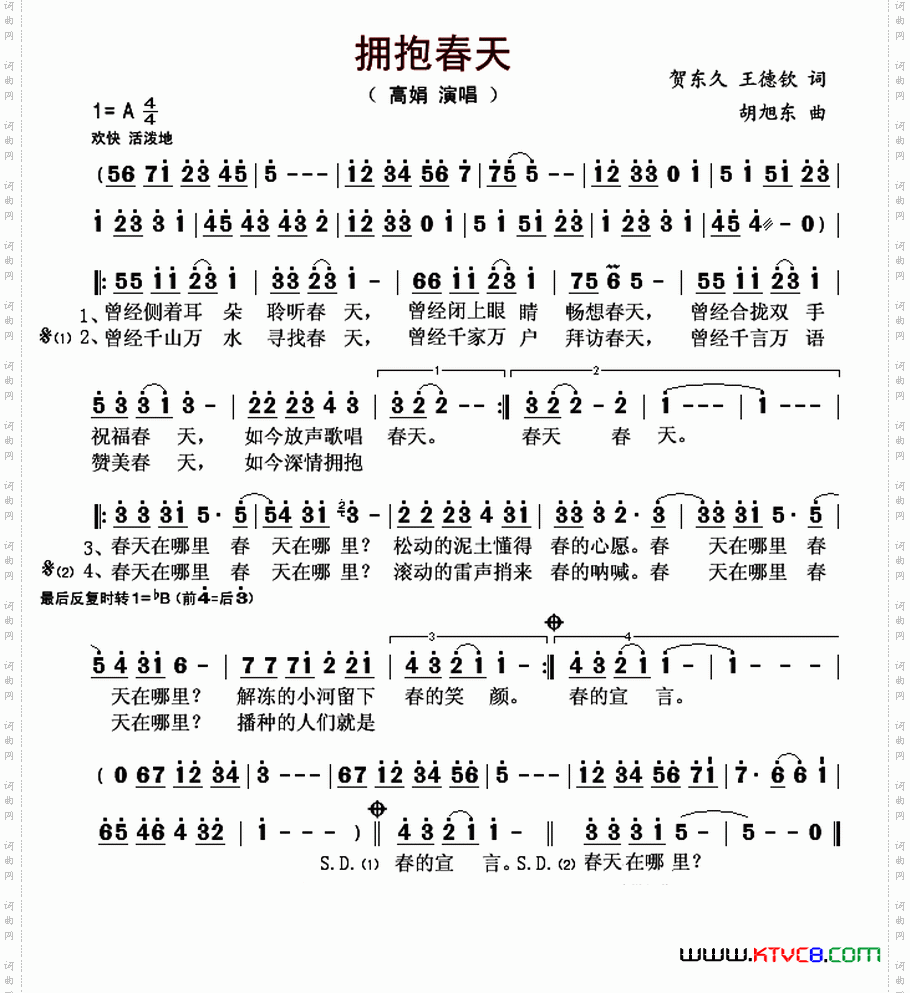 拥抱春天
（ 高娟 演唱 ）
贺东久 王德钦 词
1= A 4/4
胡旭东 曲
欢快 活泼地
( 56 71 23 45 | 5 - - - | 12 34 56 7 | 75 5 - - | 12 33 0 1 | 5 1 51 23 |
1 23 3 1 | 45 43 43 2 | 12 33 0 1 | 5 1 51 23 | 1 23 3 1 | 45 4 - 0 ) |
‖: 55 11 23 1 | 33 23 1 - | 66 11 23 1 | 75 6 5 - | 55 11 23 1 |
1、曾经侧着耳 朵 聆听春 天， 曾经闭上眼 睛 畅想春天， 曾经合拢双 手
(1) 2、曾经千山万 水 寻找春 天， 曾经千家万 户 拜访春天， 曾经千言万 语
1 2
5 3 31 3 - | 22 23 4 3 | 3 2 2 - - :‖ 3 2 2 - 2 | 1 - - - | 1 - - - |
祝福春 天， 如今放声歌唱 春天。 春天 春 天。
赞美春 天， 如今深情拥抱
‖: 3 3 31 5 · 5 | 54 31 2 3 - | 2 2 23 4 31 | 33 3 2 · 3 | 33 31 5 · 5 |
3、春天在哪里 春 天在哪 里？ 松动的泥土懂得 春的心愿。春 天在哪里 春
(2) 4、春天在哪里 春 天在哪 里？ 滚动的雷声捎来 春的呐喊。春 天在哪里 春
最后反复时转1=♭B（前4=后3）
3 4
5 4 31 6 - | 7 7 71 2 21 | 4 3 21 1 - :‖ 4 3 21 1 - | 1 - - - |
天在哪里？ 解冻的小河留下 春的笑 颜。 春的宣 言。
天在哪里？ 播种的人们就是
( 0 67 12 34 | 3 - - - | 67 12 34 56 | 5 - - - | 12 34 56 71 | 7 · 6 6 1 |
65 46 4 32 | 1 - - - ) ‖ 4 3 21 1 - ‖ 3 3 31 5 - | 5 - - 0 ‖
S.D. (1) 春的宣 言。S.D. (2) 春天在哪 里？
www.KTVC8.COM
词曲网